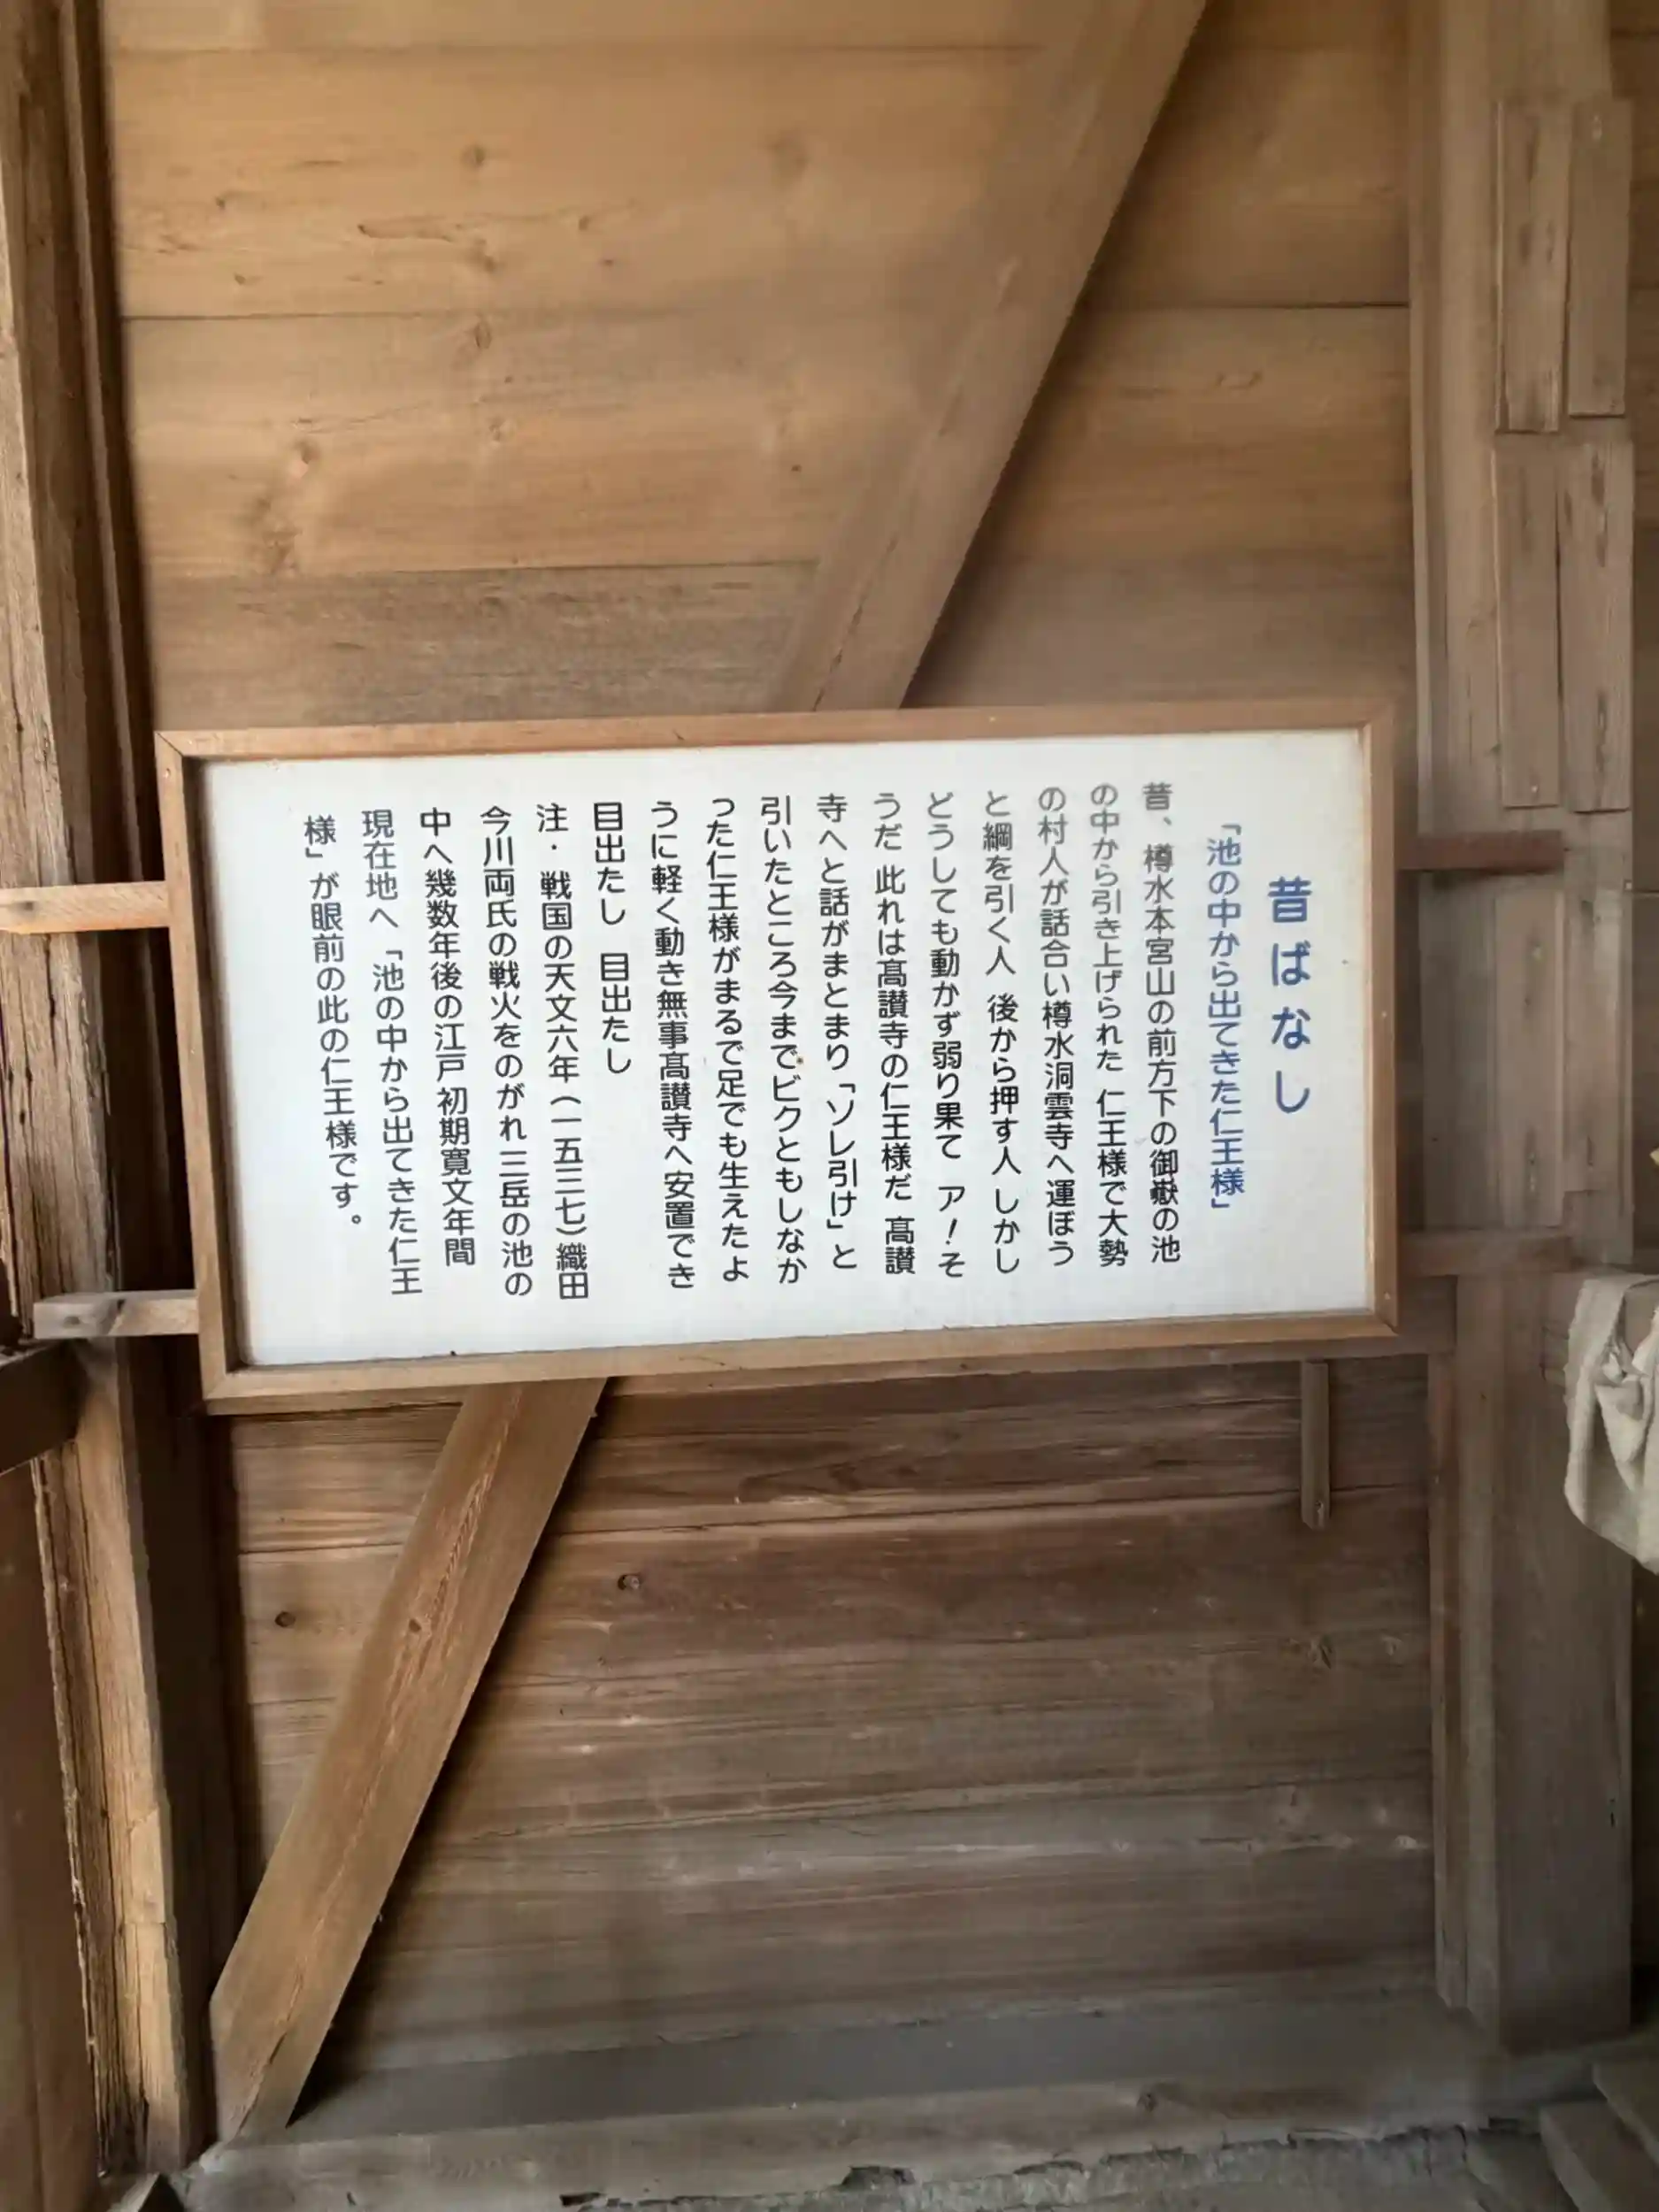 昔ばなし
「池の中から出てきた仁王様」
昔、樽水本宮山の前方下の御嶽の池
の中から引き上げられた 仁王様で大勢
の村人が話合い樽水洞雲寺へ運ぼう
と綱を引く人 後から押す人 しかし
どうしても動かず弱り果て ア！そ
うだ 此れは髙讃寺の仁王様だ 髙讃
寺へと話がまとまり「ソレ引け」と
引いたところ今までビクともしなか
った仁王様がまるで足でも生えたよ
うに軽く動き無事髙讃寺へ安置でき
目出たし 目出たし
注・ 戦国の天文六年（一五三七）織田
今川両氏の戦火をのがれ三岳の池の
中へ幾数年後の江戸初期寛文年間
現在地へ「池の中から出てきた仁王
様」が眼前の此の仁王様です。